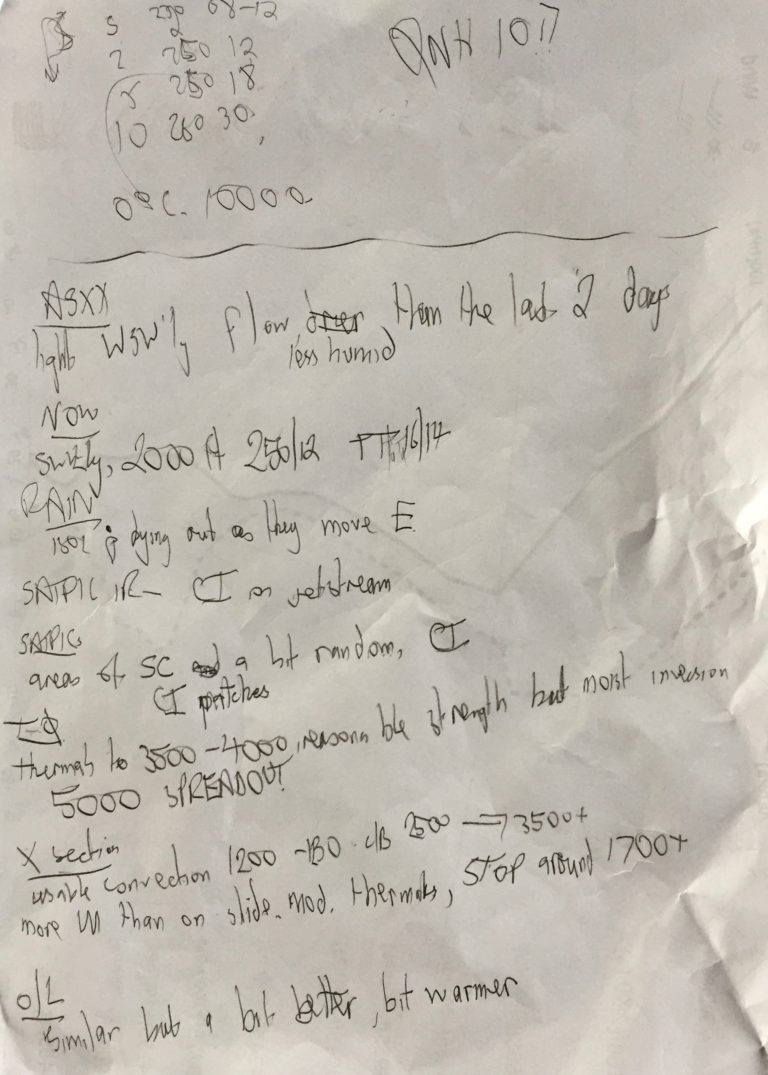 S 08-12
2 250 12
250 18
10 260 30
QNH 1017
0°C. 10000
ASXX
light WSW'ly flow than the last 2 days
less humid
NOW
SWRly, 2000 ft 250/12 TT 16/14
RAIN
dying out as they move E
SATPIC IR- CI on jetstream
SATPIC
areas of SC a bit random, CI
CI patches
T-Φ
thermals to 3500-4000, reasonable strength but moist inversion
5000 SPREADOUT
X section
usable convection 1200 - C/B 2500 → 3500+
more W than on slide. mod. thermals, STOP around 1700+
O/L
similar but a bit better, bit warmer